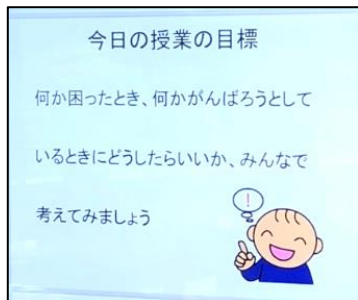 今日の授業の目標
何か困ったとき、何かがんばろうとして
いるときにどうしたらいいか、みんなで
考えてみましょう
!